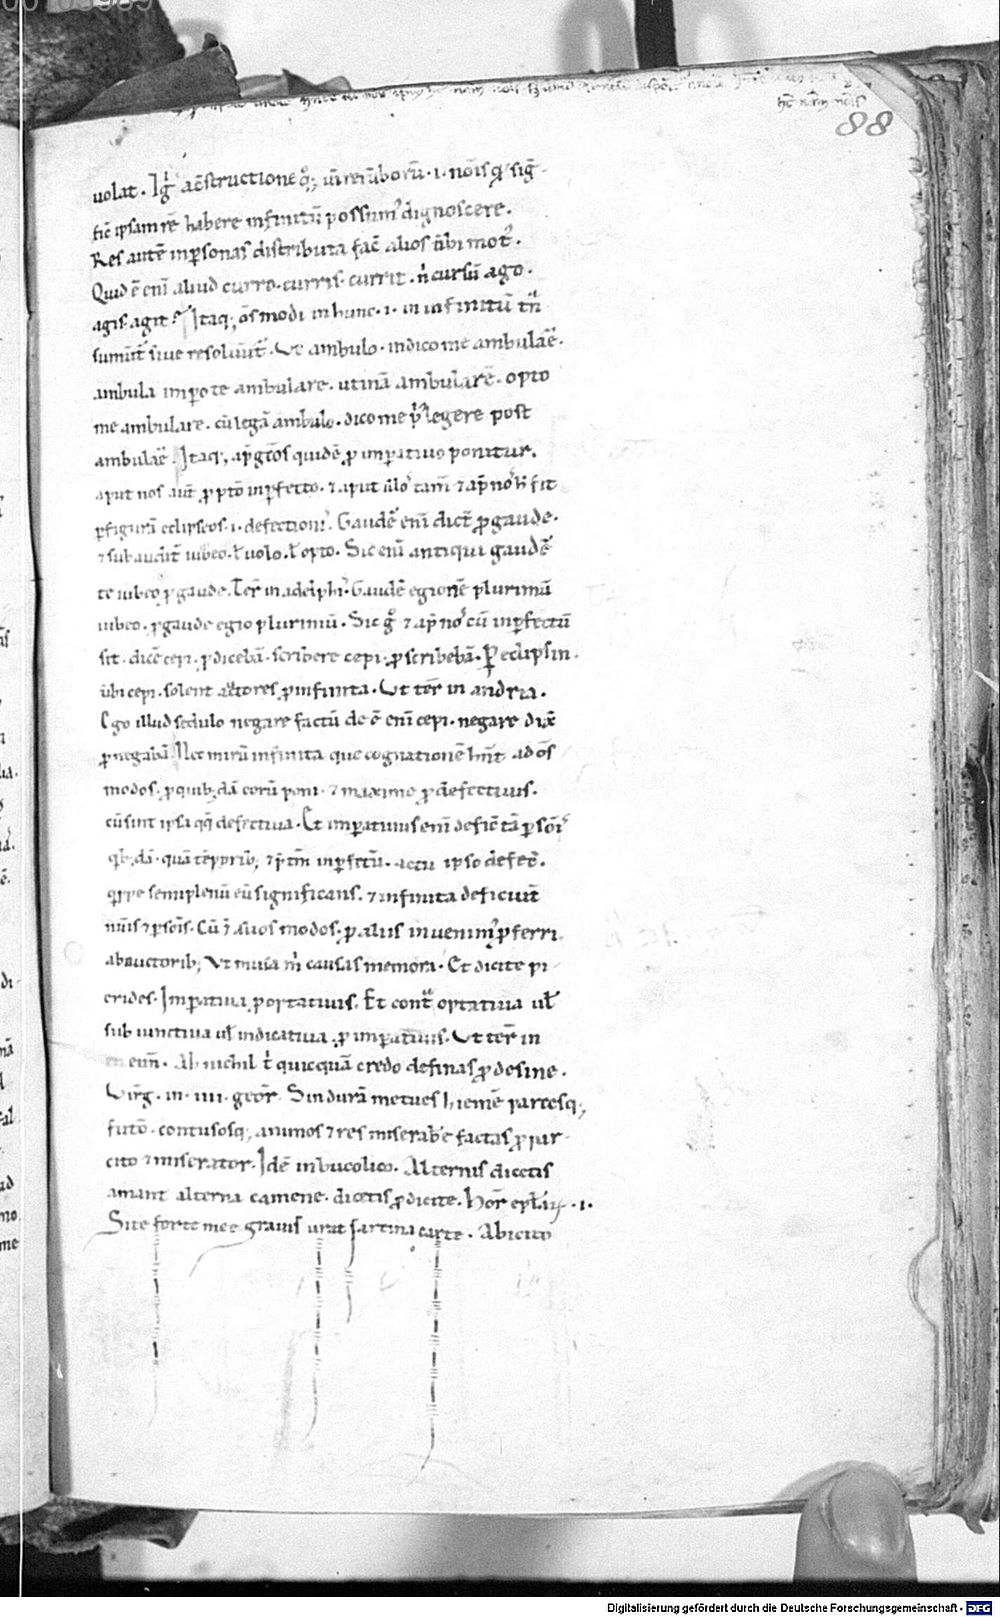 88
uolat. Igr̄ a cōstructione q̊q; uim rerū uerborū .i. nōis qd siḡ
fic̄ ipsam rē habere infinitū possum' dignoscere.
Res autē in p̱sonas distributa fac̄ alios ūbi mot'.
Quid ē eni aliud curro. curris. currit. n̄ cursū ago.
agis. agit? Itaq; ōs modi in hunc .i. in infinitū
sumūt' siue resoluūt'. Vt ambulo. indico me ambulare.
ambula impero te ambulare. utinā ambularē. opto
me ambulare. cū legā ambulo. dico me legere post
ambulare. Itaq; ap̄ grecos quidē p̱ imperatiuo ponitur.
aput nos aut̄ p̱ p̱to inp̱fecto. ⁊ aput illos tam̄ ⁊ ap̄ nos fit
p̱ figurā eclipseos .i. defectionis. Gaudē eni dict' p̱ gaude.
⁊ subaudit' iubeo. ł uolo. ł opto. Sic eni antiqui gaudē
te iubeo p̱ gaude. Ter̄ in adelphis. Gaudē egionē plurimū
iubeo. p̱ gaude egio plurimū. Sic g̊ ⁊ ap̄ nos cū inp̱fectū
sit. dicē cepi. p̱ dicebā. scribere cepi. p̱ scribebā. Per eclipsin.
ūbi cepi. solent auctores p̱ infinita. Vt ter̄ in andria.
Ego illud sedulo negare factū de ē eni cepi. negare dix̄
p̱ negabā. Nec mirū infinita que cognationē hn̄t ad ōs
modos. p̱ quib; dā eorū poni. ⁊ maxime p̱ defectiuis.
cū sint ipsa qq̄ defectiua. Et imperatiuus eni deficit tā p̱sonis
qb;dā. quā tēporib; ⁊ p̱tm̄ inp̱fectū. actu ipso defec̄.
q̱ppe semiplenū eū significans. ⁊ infinita deficiūt
nūis ⁊ p̱sōis. Cū ⁊ alios modos. p̱ aliis inuenim' p̱ferri
ab auctorib; Vt musa m̄ causas memora. Et dicite pi-
erides. Imperatiua p̱ optatiuis. Et cont̄ optatiua uł
subiunctiua uł indicatiua. p̱ imperatiuis. Vt ter̄ in
eun̄. Ab nichil t̄ quicquā credo definas p̱ desine.
Virḡ. in .IIII. georḡ. Sin durā metues hiemē parcesq;
futō. contusosq; animos ⁊ res miserabē factas p̱ par-
cito ⁊ miserator. Idē in bucolico. Alternis dicetis
amant alterna camene. dicetis p̱ dicite. Hor̄ epłarū .i.
Si te forte mee grauis uret sartina carte. Abicito
Digitalisierung gefördert durch die Deutsche Forschungsgemeinschaft - DFG